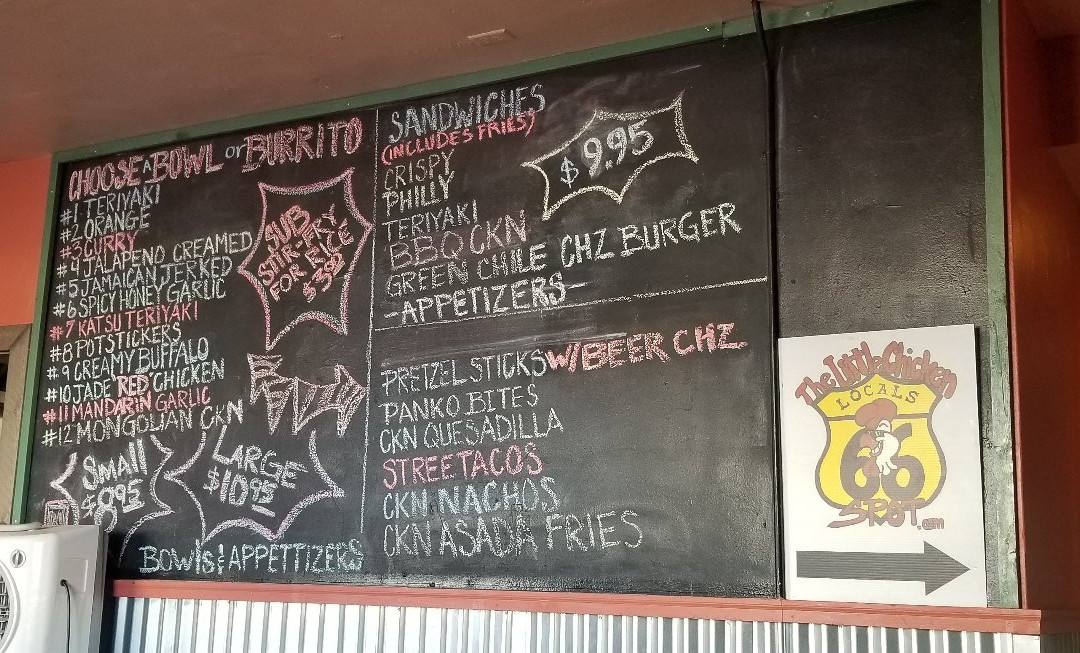 CHOOSE A BOWL or BURRITO
#1 TERIYAKI
#2 ORANGE
#3 CURRY
#4 JALAPENO CREAMED
#5 JAMAICAN JERKED
#6 SPICY HONEY GARLIC
#7 KATSU TERIYAKI
#8 POTSTICKERS
#9 CREAMY BUFFALO
#10 JADE RED CHICKEN
#11 MANDARIN GARLIC
#12 MONGOLIAN CKN
SUB
STIR-FRY
FOR RICE
$3.00
SMALL
$8.95
LARGE
$10.95
BOWLS & APPETTIZERS
SANDWICHES
(INCLUDES FRIES)
$9.95
CRISPY
PHILLY
TERIYAKI
BBQ CKN
GREEN CHILE CHZ BURGER
-APPETIZERS-
PRETZEL STICKS W/BEER CHZ.
PANKO BITES
CKN QUESADILLA
STREETACOS
CKN NACHOS
CKN ASADA FRIES
The Little Chicken
LOCALS
66
SPOT.com